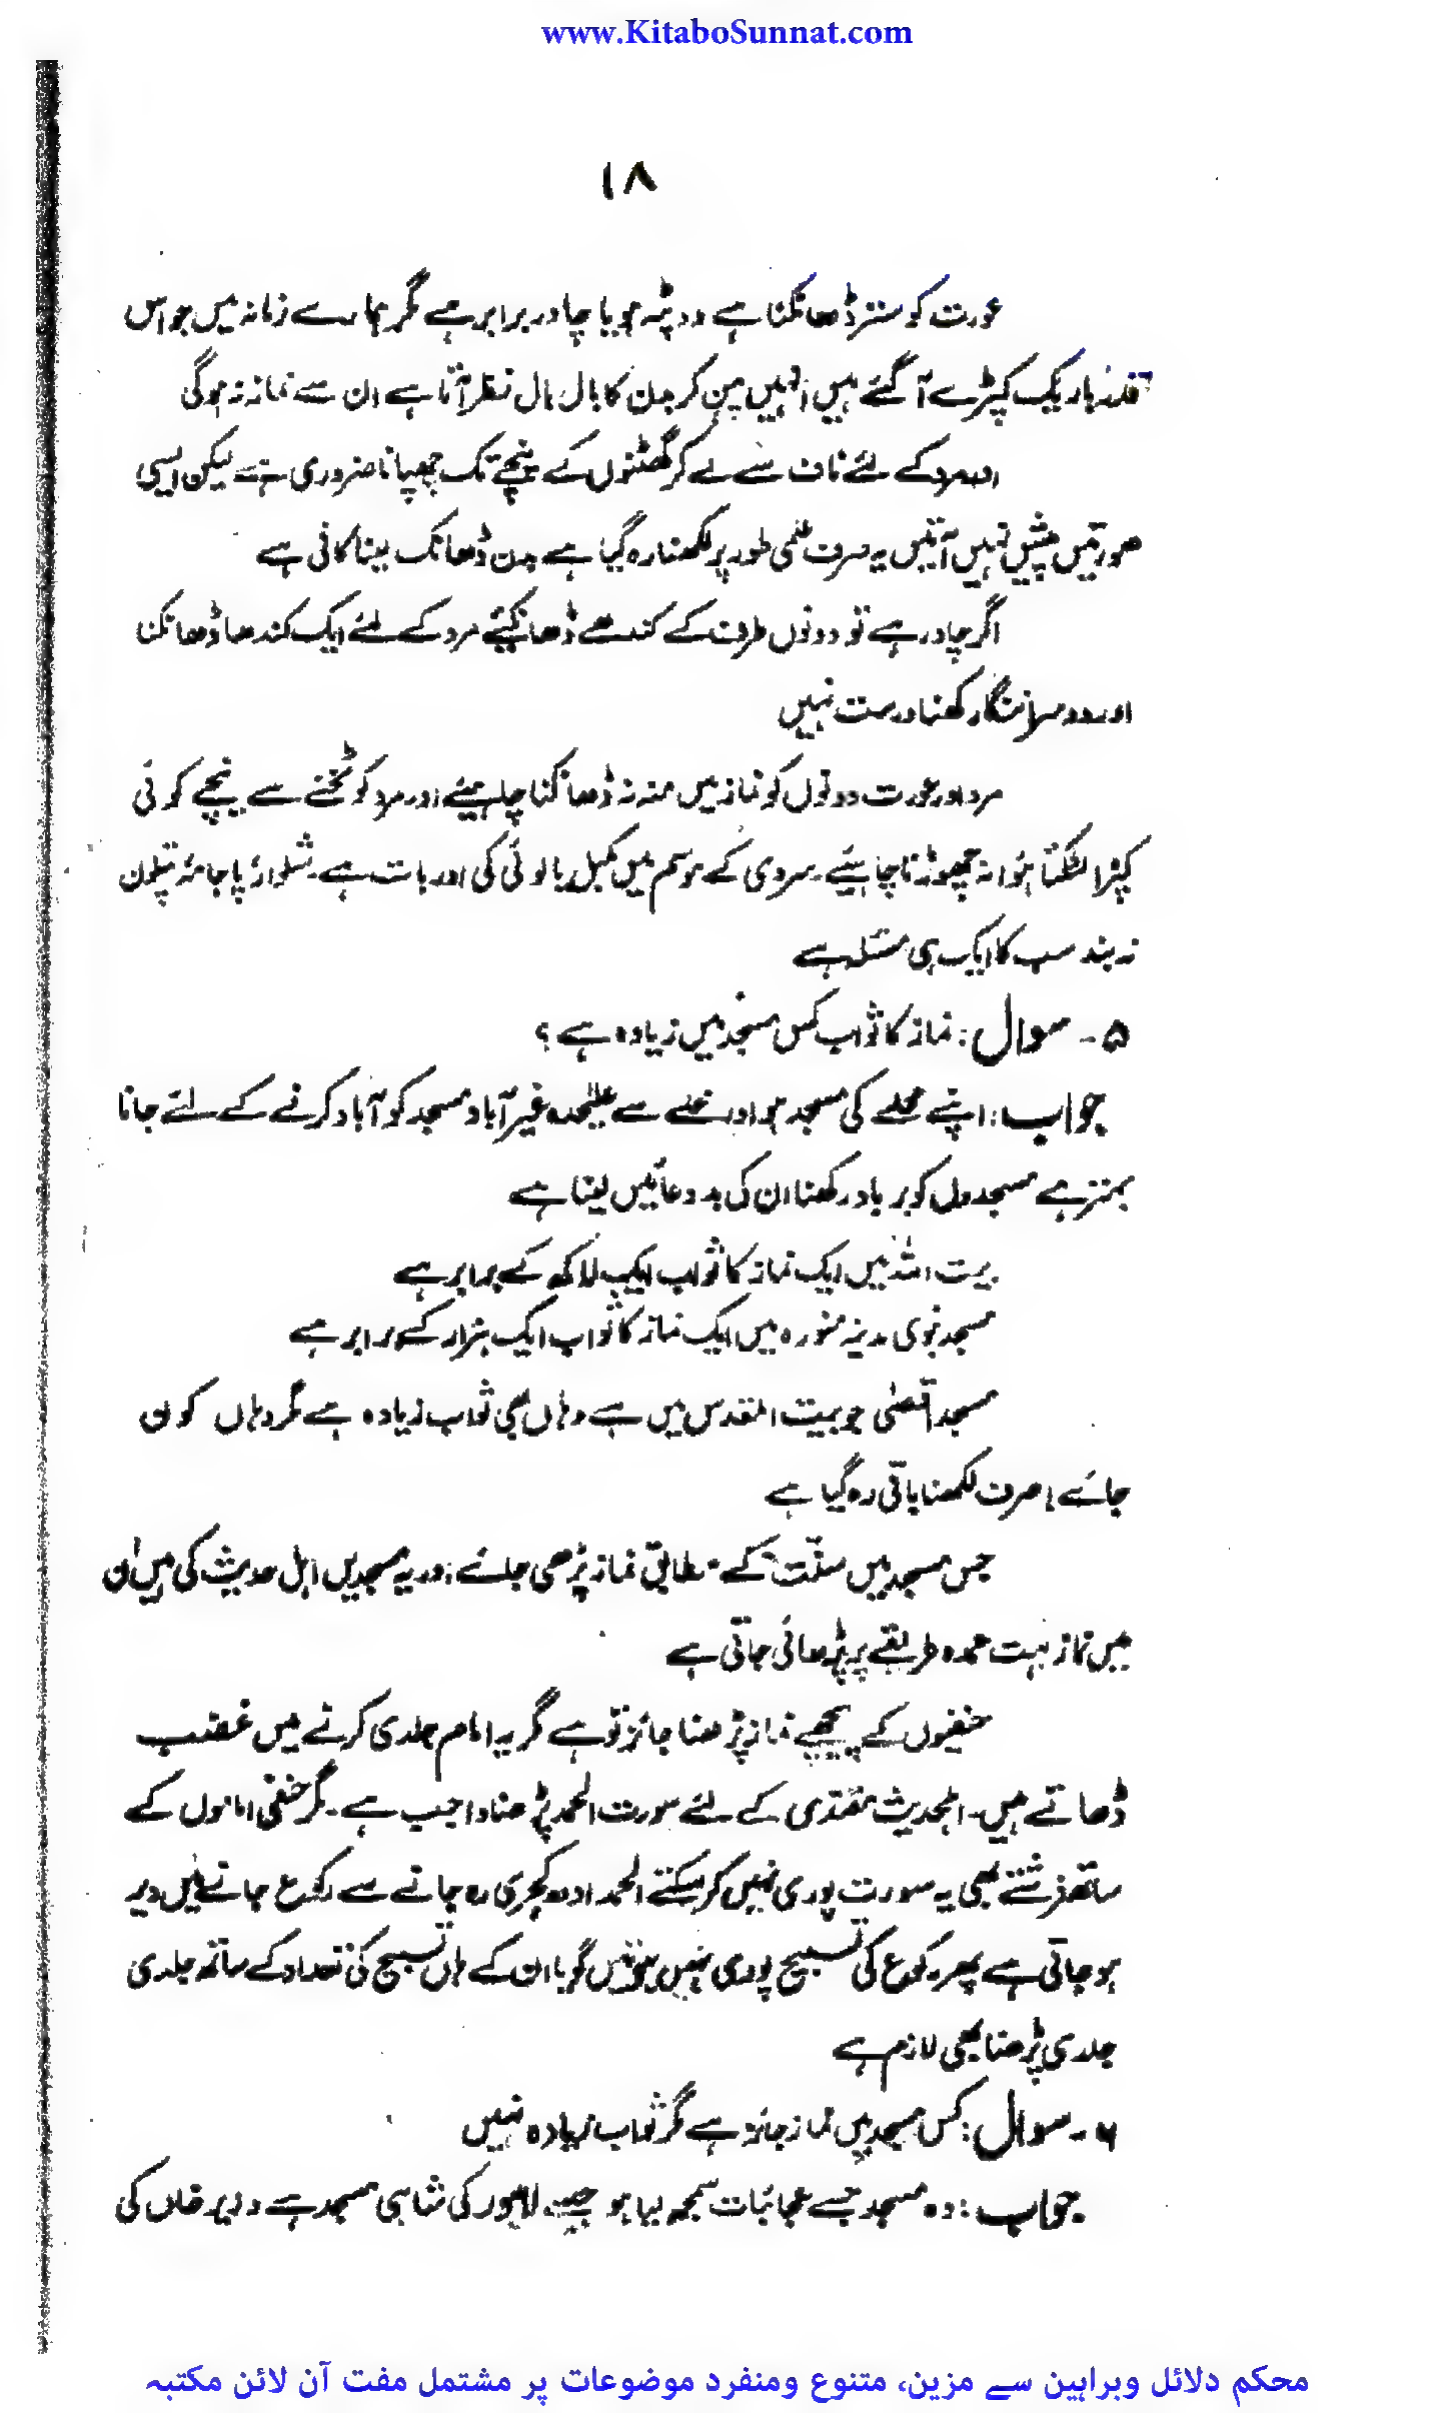 www.KitaboSunnat.com
۱۸
عورت کو ستر ڈھانکنا ہے دوپٹہ ہو یا چادر برابر ہے مگر ہمارے زمانہ میں جو اس
قدر باریک کپڑے آ گئے ہیں انہیں پہن کر جن کا بال بال نظر آتا ہے ان سے نماز نہ ہوگی
اور مرد کے لئے ناف سے لے کر گھٹنوں کے نیچے تک چھپانا ضروری ہے لیکن ایسی
صورتیں پیش نہیں آتیں یہ صرف علمی طور پر لکھنا رہ گیا ہے بدن ڈھانک لینا کافی ہے
اگر چادر ہے تو دونوں طرف کے کندھے ڈھانکیئے مرد کے لئے ایک کندھا ڈھانکنا
اور دوسرا ننگا رکھنا درست نہیں
مرد اور عورت دونوں کو نماز میں منہ نہ ڈھانکنا چاہیئے اور مرد کو ٹخنے سے نیچے کوئی
کپڑا لٹکتا ہوا نہ چھوڑنا چاہیئے۔ سردی کے موسم میں کمبل یا لوئی کی اور بات ہے۔ شلوار پاجامہ پتلون
تہ بند سب کا ایک ہی مسئلہ ہے
۵۔ سوال: نماز کا ثواب کس مسجد میں زیادہ ہے ؟
جواب: اپنے محلے کی مسجد ہو اور محلے سے علیٰحدہ غیر آباد مسجد کو آباد کرنے کے لئے جانا
بہتر ہے مسجدوں کو برباد رکھنا ان کی بد دعائیں لینا ہے
بیت اللہ میں ایک نماز کا ثواب ایک لاکھ کے برابر ہے
مسجد نبوی مدینہ منورہ میں ایک نماز کا ثواب ایک ہزار کے برابر ہے
مسجد اقصیٰ جو بیت المقدس میں ہے وہاں بھی ثواب زیادہ ہے مگر وہاں کون
جائے! صرف لکھنا باقی رہ گیا ہے
جس مسجد میں سنّت کے مطابق نماز پڑھی جائے اور یہ مسجدیں اہل حدیث کی ہیں ان
میں نماز بہت عمدہ طریقے پر پڑھائی جاتی ہے
حنفیوں کے پیچھے نماز پڑھنا جائز تو ہے مگر یہ امام جلدی کرنے میں غضب
ڈھاتے ہیں۔ اہلحدیث مقتدی کے لئے سورت الحمد پڑھنا واجب ہے۔ مگر حنفی اماموں کے
ساتھ فرشتے بھی یہ سورت پوری نہیں کر سکتے الحمد ادھوری رہ جانے سے رکوع جانے میں دیر
ہو جاتی ہے پھر رکوع کی تسبیح پوری نہیں ہوتیں گویا ان کے ہاں تسبیح کی تعداد کے ساتھ جلدی
جلدی پڑھنا بھی لازم ہے
۶۔ سوال: کس مسجد میں نماز جائز ہے مگر ثواب زیادہ نہیں
جواب: وہ مسجد جسے عجائبات سمجھ لیا ہو جیسے لاہور کی شاہی مسجد ہے وزیر خاں کی
محکم دلائل وبراہین سے مزین، متنوع ومنفرد موضوعات پر مشتمل مفت آن لائن مکتبہ